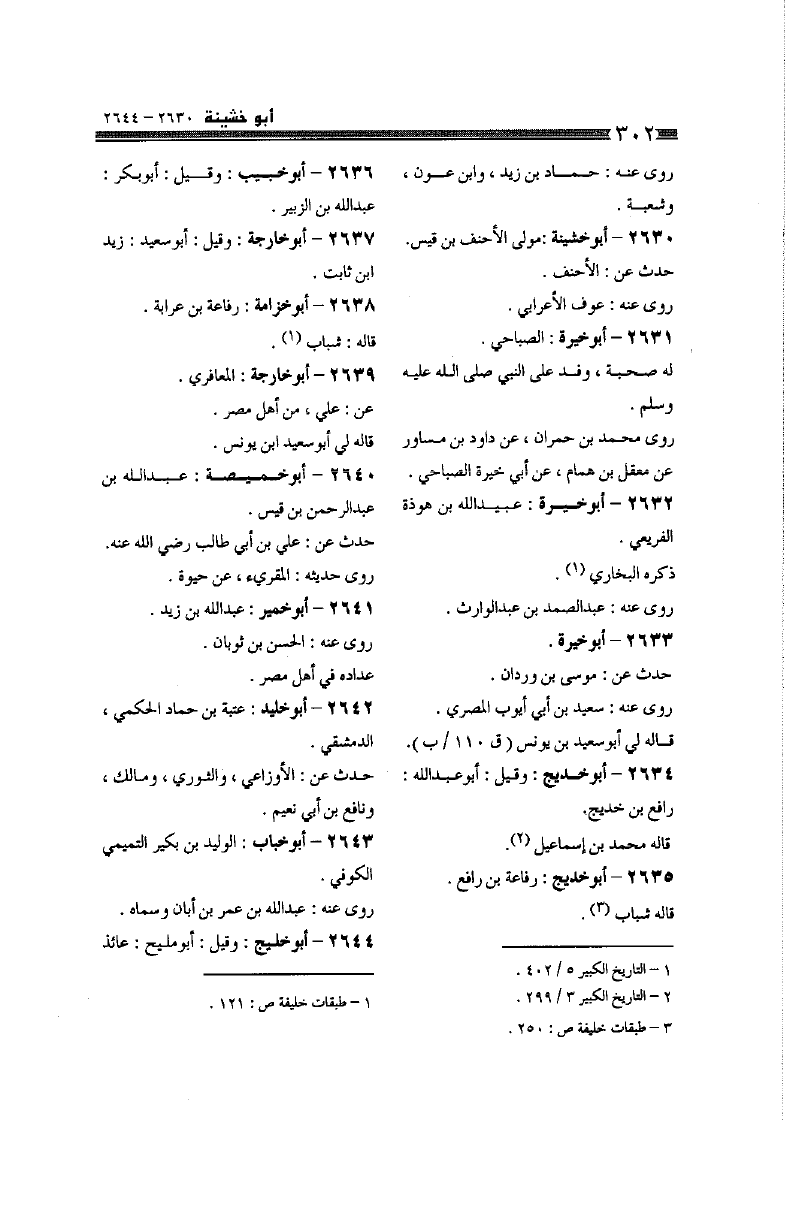 أبو خشينة ٢٦٣٠ – ٢٦٤٤
٣٠٢
روى عنه : حماد بن زيد ، وابن عون ،
وشعبة .
٢٦٣٠ – أبوخشينة :مولى الأحنف بن قيس.
حدث عن : الأحنف .
روى عنه : عوف الأعرابي .
٢٦٣١ – أبوخيرة : الصباحي .
له صحبة ، وفد على النبي صلى الله عليه
وسلم .
روى محمد بن حمران ، عن داود بن مساور
عن معقل بن همام ، عن أبي خيرة الصباحي .
٢٦٣٢ – أبوخيرة : عبيدالله بن هوذة
الفريعي .
ذكره البخاري (١) .
روى عنه : عبدالصمد بن عبدالوارث .
٢٦٣٣ – أبوخيرة .
حدث عن : موسى بن وردان .
روى عنه : سعيد بن أبي أيوب المصري .
قاله لي أبوسعيد بن يونس ( ق ١١٠ / ب ).
٢٦٣٤ – أبوخديج : وقيل : أبوعبدالله :
رافع بن خديج.
قاله محمد بن إسماعيل (٢).
٢٦٣٥ – أبوخديج : رفاعة بن رافع .
قاله شباب (٣) .
١ – التاريخ الكبير ٥ / ٤٠٢ .
٢ – التاريخ الكبير ٣ / ٢٩٩ .
٣ – طبقات خليفة ص : ٢٥٠ .
٢٦٣٦ – أبوخبيب : وقيل : أبوبكر :
عبدالله بن الزبير .
٢٦٣٧ – أبوخارجة : وقيل : أبوسعيد : زيد
ابن ثابت .
٢٦٣٨ – أبوخزامة : رفاعة بن عرابة .
قاله : شباب (١) .
٢٦٣٩ – أبوخارجة : المعافري .
عن : علي ، من أهل مصر .
قاله لي أبوسعيد ابن يونس .
٢٦٤٠ – أبوخميصة : عبدالله بن
عبدالرحمن بن قيس .
حدث عن : علي بن أبي طالب رضي الله عنه.
روى حديثه : المقريء ، عن حيوة .
٢٦٤١ – أبوخمير : عبدالله بن زيد .
روى عنه : الحسن بن ثوبان .
عداده في أهل مصر .
٢٦٤٢ – أبوخليد : عتبة بن حماد الحكمي ،
الدمشقي .
حدث عن : الأوزاعي ، والثوري ، ومالك ،
ونافع بن أبي نعيم .
٢٦٤٣ – أبوخباب : الوليد بن بكير التميمي
الكوفي .
روى عنه : عبدالله بن عمر بن أبان وسماه .
٢٦٤٤ – أبوخليج : وقيل : أبومليح : عائذ
١ – طبقات خليفة ص : ١٢١ .